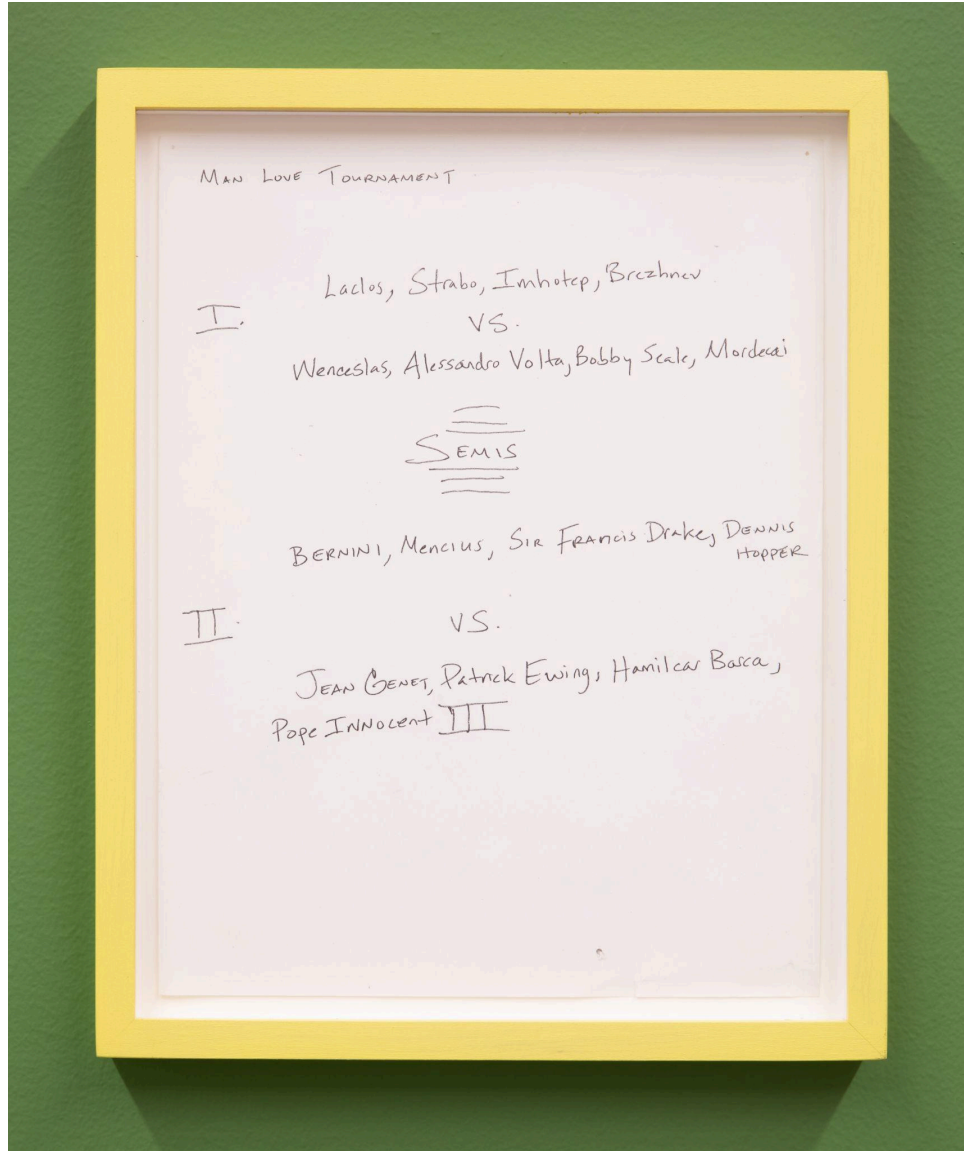 MAN LOVE TOURNAMENT
Laclos, Strabo, Imhotep, Brezhnev
I.
VS.
Wenceslas, Alessandro Volta, Bobby Seale, Mordecai
SEMIS
BERNINI, Mencius, SIR FRANCIS Drake, DENNIS
HOPPER
II.
VS.
JEAN GENET, Patrick Ewing, Hamilcar Barca,
Pope INNOCENT III